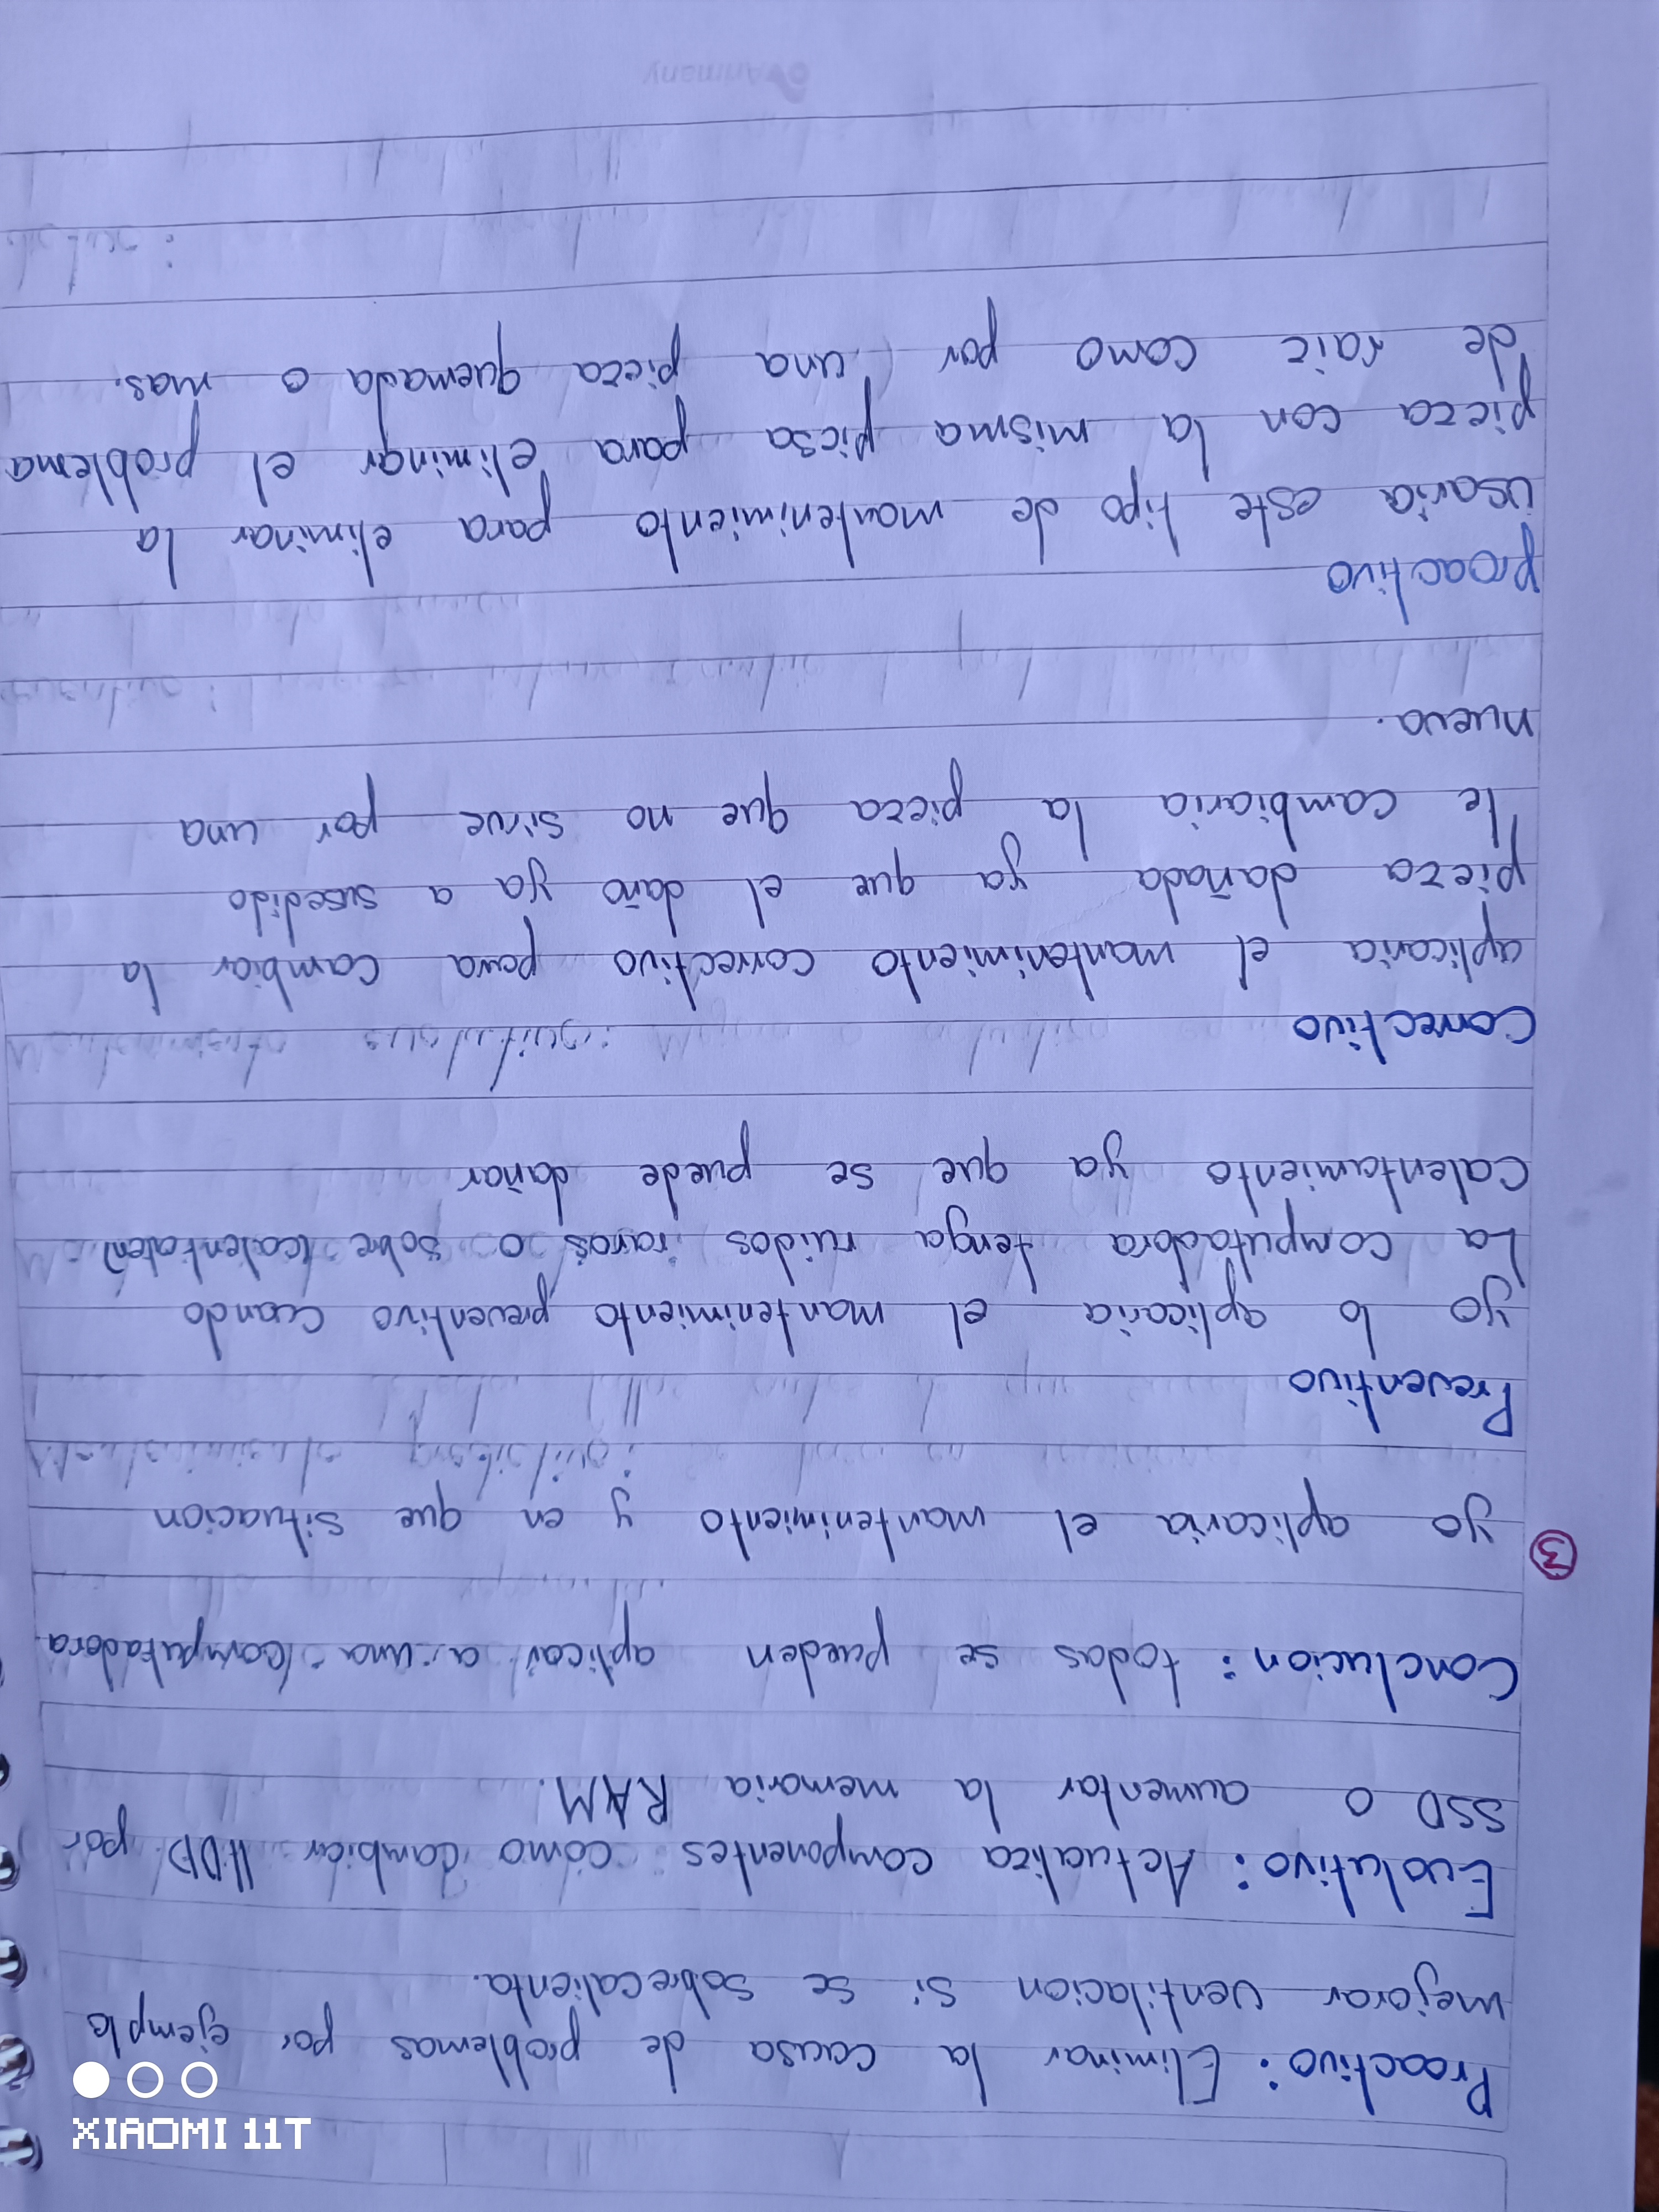 Proactivo: Eliminar la causa de problemas por ejemplo
mejorar ventilacion si se sobrecalienta.
Evolutivo: Actualiza componentes como cambiar HDD por
SSD o aumentar la memoria RAM.
Conclucion: todas se pueden aplicar a una computadora
③ yo aplicaria el mantenimiento y en que situacion
Preventivo
yo lo aplicaria el mantenimiento preventivo cuando
La computadora tenga ruidos raros o sobre (calentaten)
Calentamiento ya que se puede dañar
Correctivo
aplicaria el mantenimiento correctivo para cambiar la
pieza dañada ya que el daño ya a susedido
le cambiaria la pieza que no sirve por una
nueva.
proactivo
usaria este tipo de mantenimiento para eliminar la
pieza con la misma piesa para eliminar el problema
de raiz como por una pieza quemada o mas.
XIAOMI 11T